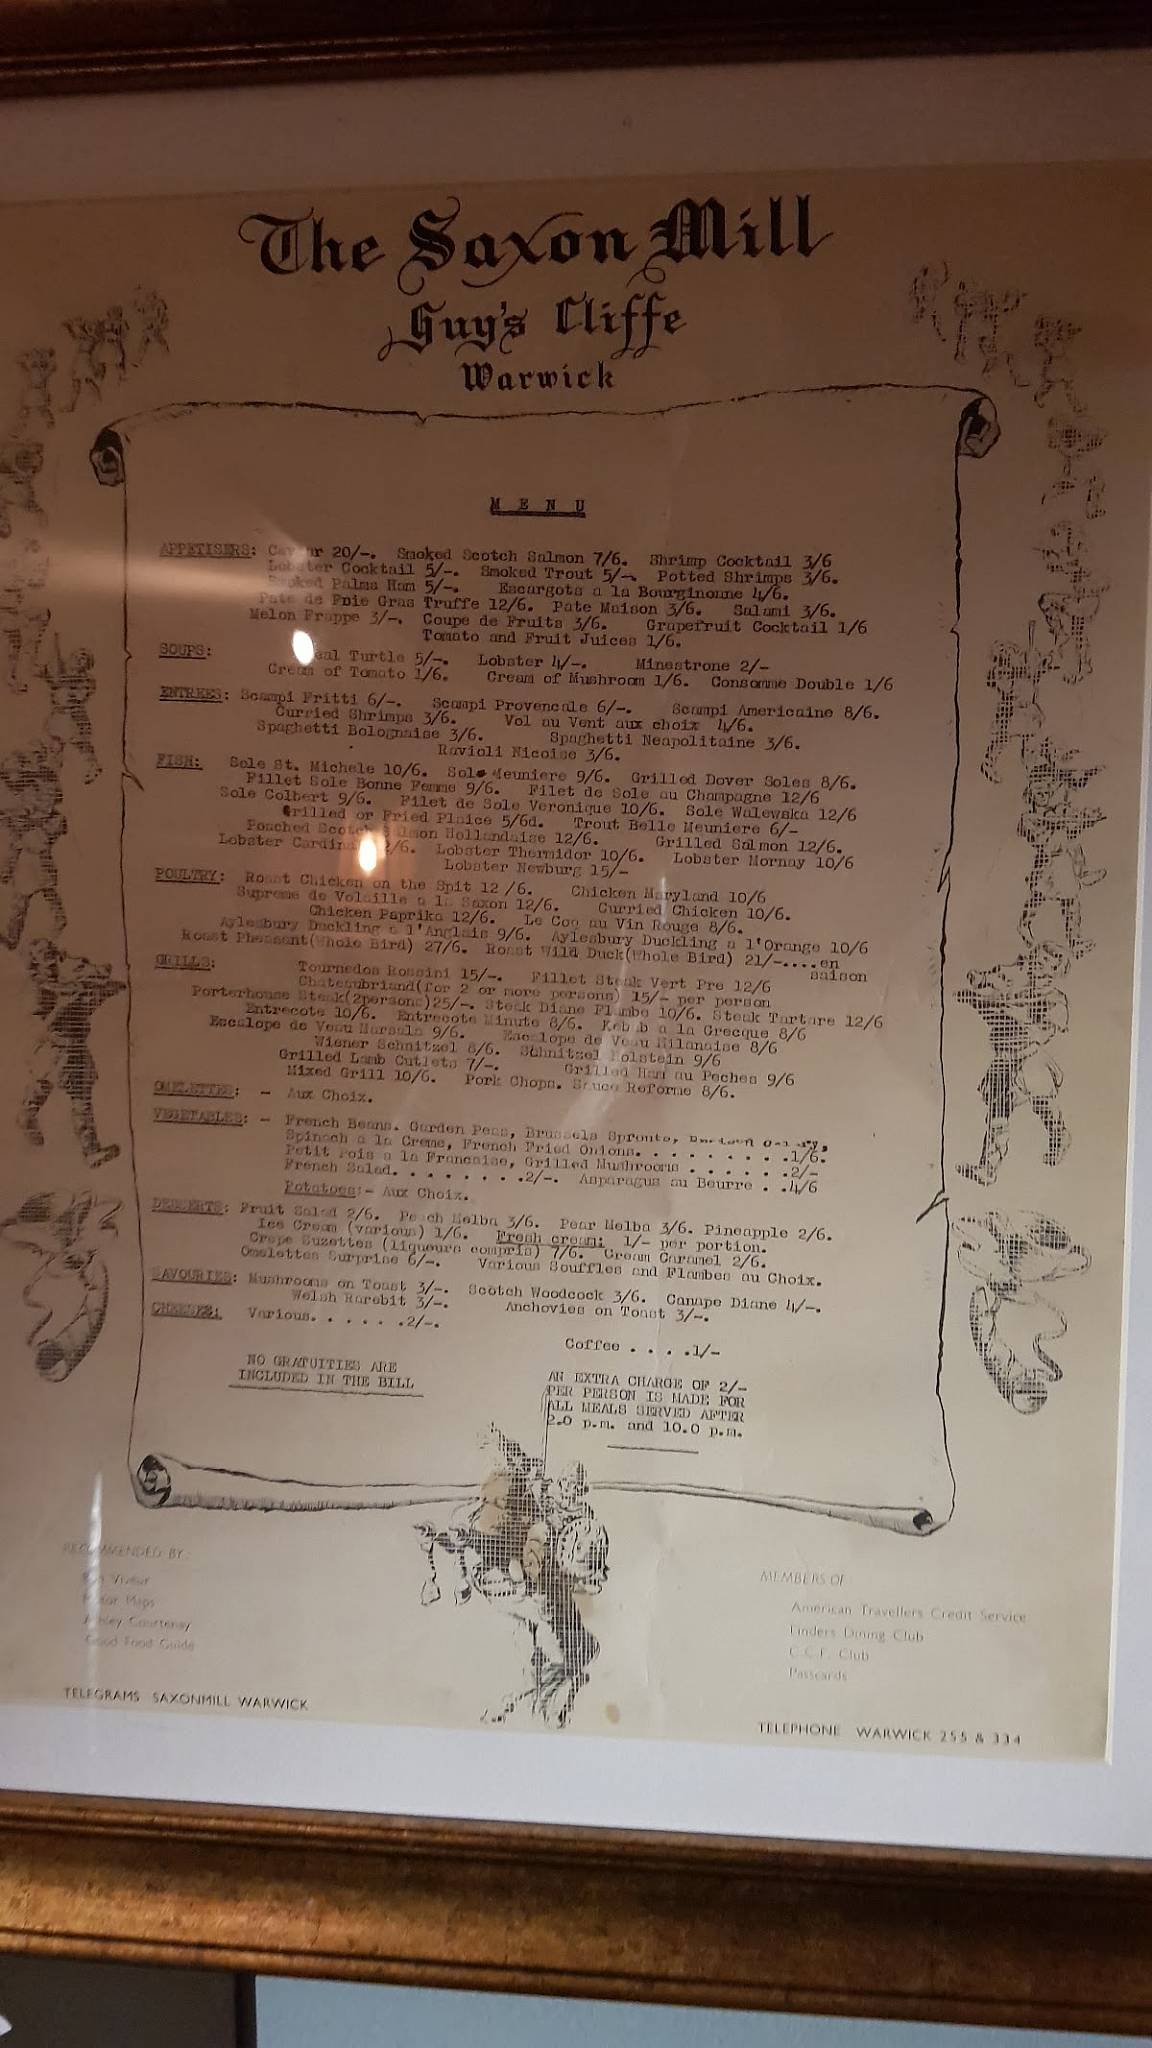 The Saxon Mill
Guy's Cliffe
Warwick
MENU
APPETISERS: Caviar 20/-. Smoked Scotch Salmon 7/6. Shrimp Cocktail 3/6
Lobster Cocktail 5/-. Smoked Trout 5/-. Potted Shrimps 3/6.
Smoked Palma Ham 5/-. Escargots a la Bourginonne 4/6.
Pate de Foie Gras Truffe 12/6. Pate Maison 3/6. Salami 3/6.
Melon Frappe 3/-. Coupe de Fruits 3/6. Grapefruit Cocktail 1/6
Tomato and Fruit Juices 1/6.
SOUPS: Real Turtle 5/-. Lobster 4/-. Minestrone 2/-
Cream of Tomato 1/6. Cream of Mushroom 1/6. Consomme Double 1/6
ENTREES: Scampi Fritti 6/-. Scampi Provencale 6/-. Scampi Americaine 8/6.
Curried Shrimps 3/6. Vol au Vent aux choix 4/6.
Spaghetti Bolognaise 3/6. Spaghetti Neapolitaine 3/6.
Ravioli Nicoise 3/6.
FISH: Sole St. Michele 10/6. Sole Meuniere 9/6. Grilled Dover Soles 8/6.
Fillet Sole Bonne Femme 9/6. Filet de Sole au Champagne 12/6
Sole Colbert 9/6. Filet de Sole Veronique 10/6. Sole Walewska 12/6
Grilled or Fried Plaice 5/6d. Trout Belle Meuniere 6/-
Poached Scotch Salmon Hollandaise 12/6. Grilled Salmon 12/6.
Lobster Cardinal 12/6. Lobster Thermidor 10/6. Lobster Mornay 10/6
Lobster Newburg 15/-
POULTRY: Roast Chicken on the Spit 12/6. Chicken Maryland 10/6
Supreme de Volaille a la Saxon 12/6. Curried Chicken 10/6.
Chicken Paprika 12/6. Le Coq au Vin Rouge 8/6.
Aylesbury Duckling a l'Anglais 9/6. Aylesbury Duckling a l'Orange 10/6
Roast Pheasant(Whole Bird) 27/6. Roast Wild Duck(Whole Bird) 21/-....en
saison
GRILLS: Tournedos Rossini 15/-. Fillet Steak Vert Pre 12/6
Chateaubriand(for 2 or more persons) 15/- per person
Porterhouse Steak(2persons)25/-. Steak Diane Flambe 10/6. Steak Tartare 12/6
Entrecote 10/6. Entrecote Minute 8/6. Kebab a la Grecque 8/6
Escalope de Veau Marsala 9/6. Escalope de Veau Milanaise 8/6
Wiener Schnitzel 8/6. Schnitzel Holstein 9/6
Grilled Lamb Cutlets 7/-. Grilled Ham au Peches 9/6
Mixed Grill 10/6. Pork Chops. Sauce Reforme 8/6.
OMELETTES: - Aux Choix.
VEGETABLES: - French Beans. Garden Peas, Brussels Sprouts,
Spinach a la Creme, French Fried Onions. . . . . . . . .1/6.
Petit Pois a la Francaise, Grilled Mushrooms . . . . . .2/-
French Salad. . . . . . . .2/-. Asparagus au Beurre . .4/6
Potatoes:- Aux Choix.
DESSERTS: Fruit Salad 2/6. Peach Melba 3/6. Pear Melba 3/6. Pineapple 2/6.
Ice Cream (various) 1/6. Fresh cream: 1/- per portion.
Crepe Suzettes (liqueurs compris) 7/6. Cream Caramel 2/6.
Omelettes Surprise 6/-. Various Souffles and Flambes au Choix.
SAVOURIES: Mushrooms on Toast 3/-. Scotch Woodcock 3/6. Canape Diane 4/-.
Welsh Rarebit 3/-. Anchovies on Toast 3/-.
CHEESES: Various. . . . . .2/-.
Coffee . . . .1/-
NO GRATUITIES ARE
INCLUDED IN THE BILL
AN EXTRA CHARGE OF 2/-
PER PERSON IS MADE FOR
ALL MEALS SERVED AFTER
2.0 p.m. and 10.0 p.m.
RECOMMENDED BY:
Bon Viveur
Motor Maps
Ashley Courtenay
Good Food Guide
TELEGRAMS SAXONMILL WARWICK
MEMBERS OF
American Travellers Credit Service
Linders Dining Club
C.C.F. Club
Passcards
TELEPHONE WARWICK 255 & 334